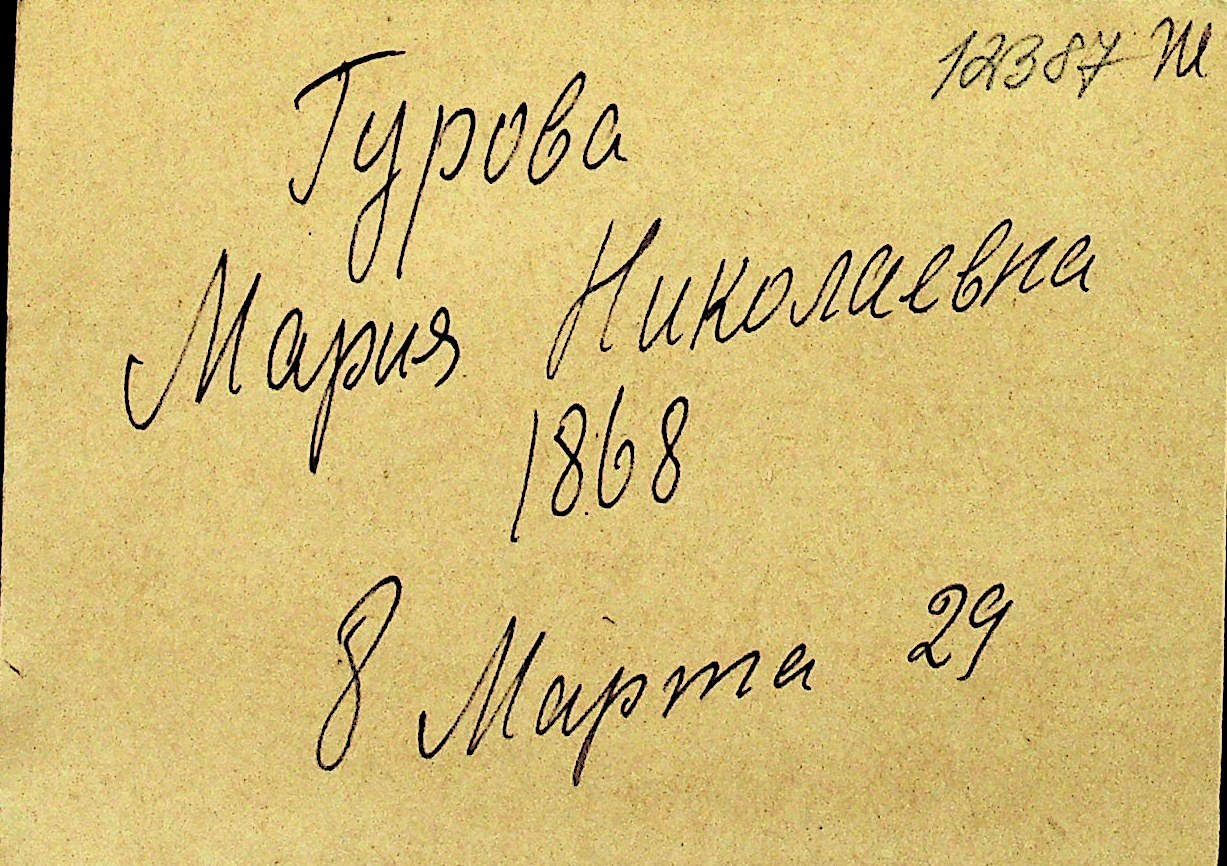 12387 Ж
Гурова
Мария Николаевна
1868
8 Марта 29